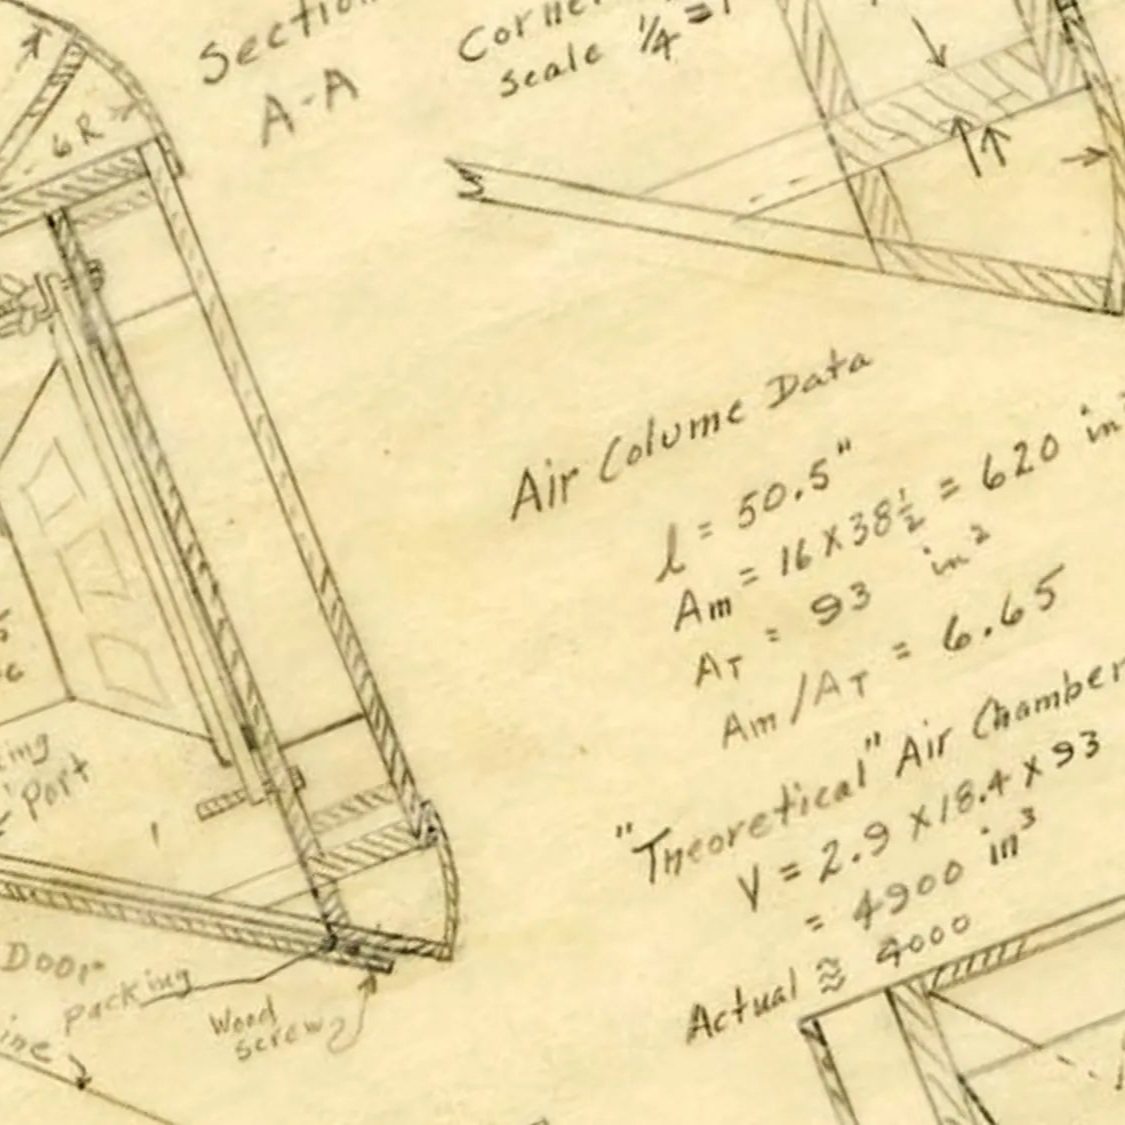 Section
A-A
scale 1/4 = 1
6R
Air Column Data
l = 50.5"
Am = 16 x 38 1/2 = 620 in²
AT = 93 in²
Am/AT = 6.65
"Theoretical" Air Chamber
V = 2.9 x 18.4 x 93
= 4900 in³
Actual ≈ 4000
Port
Door
packing
Wood
screw